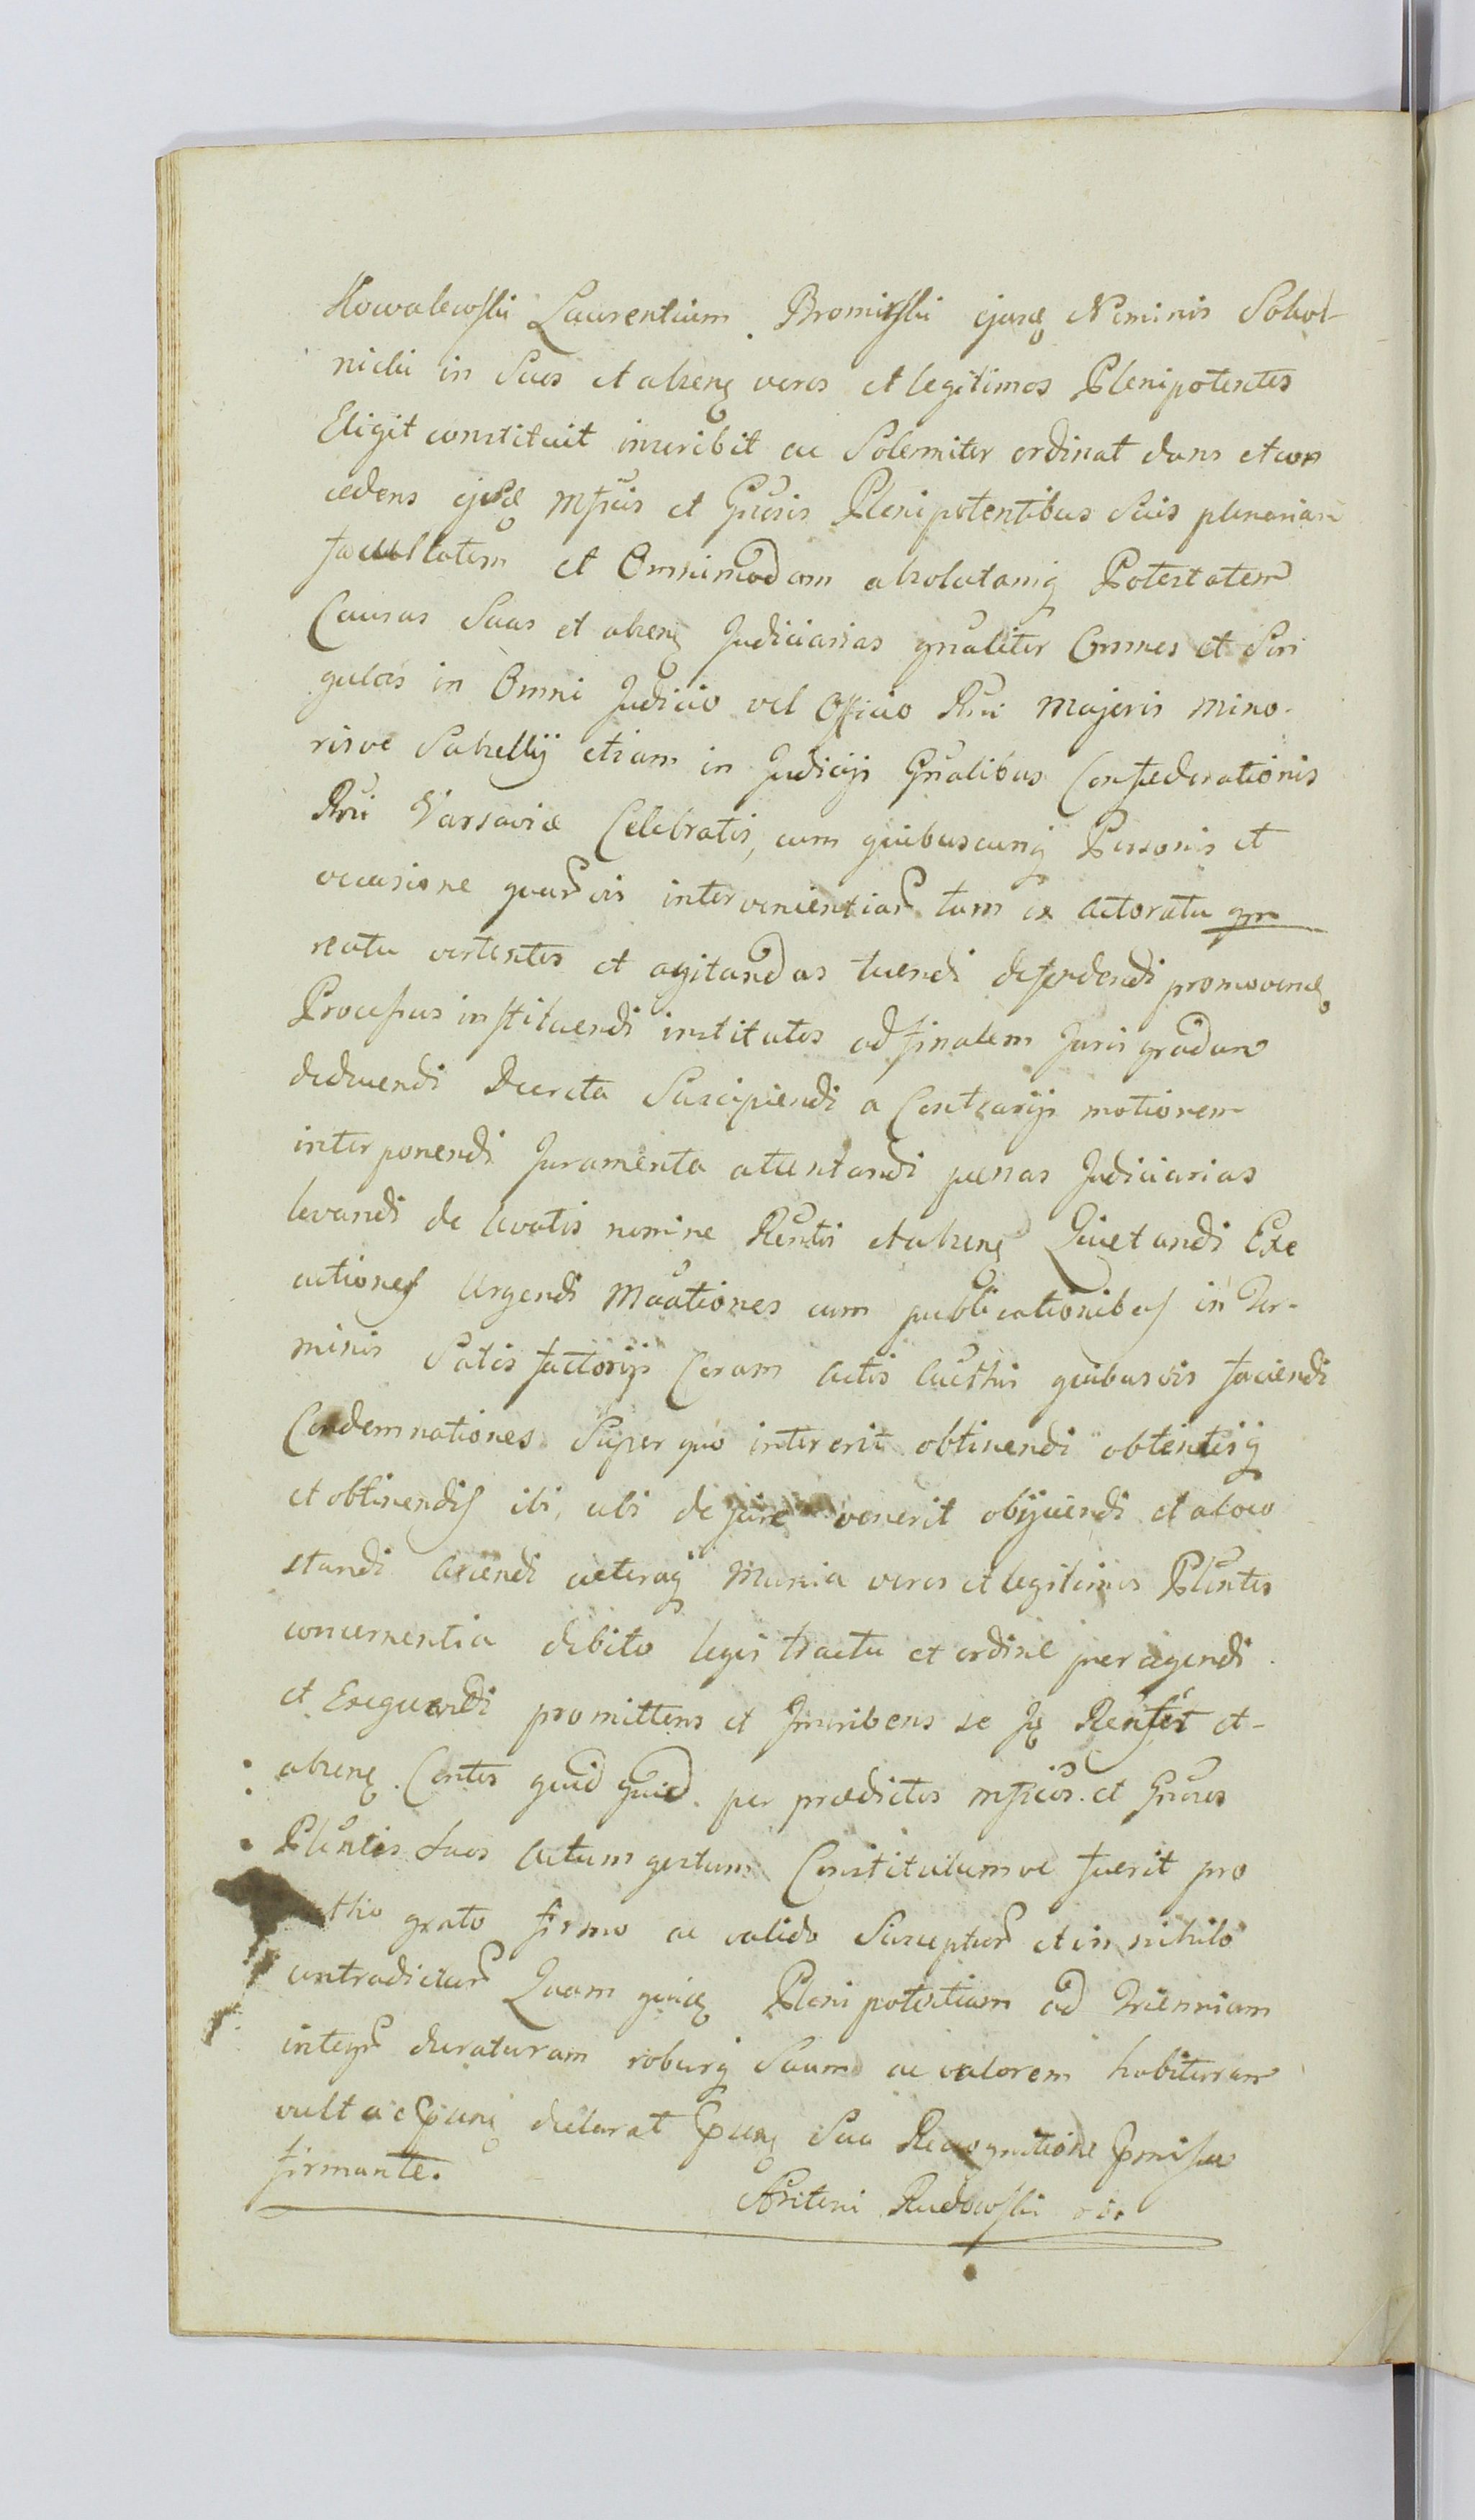 Kowalewski Laurentium Bromirski ejusq Nominis Sokol-
nicki in Suos et absenq veros et legitimos Plenipotentes
Eligit constituit inscribit ac Solemniter ordinat dans et con
cedens ejusd Mficis et Gnosis Plenipotentibus Suis plenariam
facultatem et Omnimodam absolutamq Potestatem
Causas Suas et absenq Judiciarias gnaliter Omnes et Sin
gulas in Omni Judicio vel Officio Rni Majoris Mino-
risve Subsellij etiam in Judicijs Gnalibus Confederationis
Rni Varsaviæ Celebratis, cum quibuscunq Personis et
occasione quarvis intervenientiar tam ex actoratu qm
reatu vertentes et agitandas tuendi defendendi promovend
Processus instituendi institutos ad finalem Juris gradum
deducendi Decreta Suscipiendi a Contrarijs motionem
interponendi Juramenta attentandi pœnas Judiciarias
levandi de levatis nomine Rentis et absenq Quietandi Exe
cutiones Urgendi Monitiones cum publicationibus in Ter-
minis Satis factorijs Coram Actis Authis quibusvis faciendi
Condemnationes Super quo intererit obtinendi obtentisq
et obtinendis ibi, ubi de jure venerit obijciendi et a loco
standi arcendi cæteraq Munia veros et legitimos Plentes
concernentia debito legis tractu et ordine peragendi
et Exequendi promittens et Inscribens se Jq Rentes et-
absenq Contes quid quid per prædictos Mficos et Gnosos
Plentes Suos Actum gestum Constitutumve fuerit pro
grato firmo ac valido Suscepturr et in nihilo
contradictur Quam quidq Plenipotentiam ad Triennium
integr duraturam roburq Suum ac valorem habituram
vult ac declarat Sua Recognitione
firmante.
Antoni Rudowski